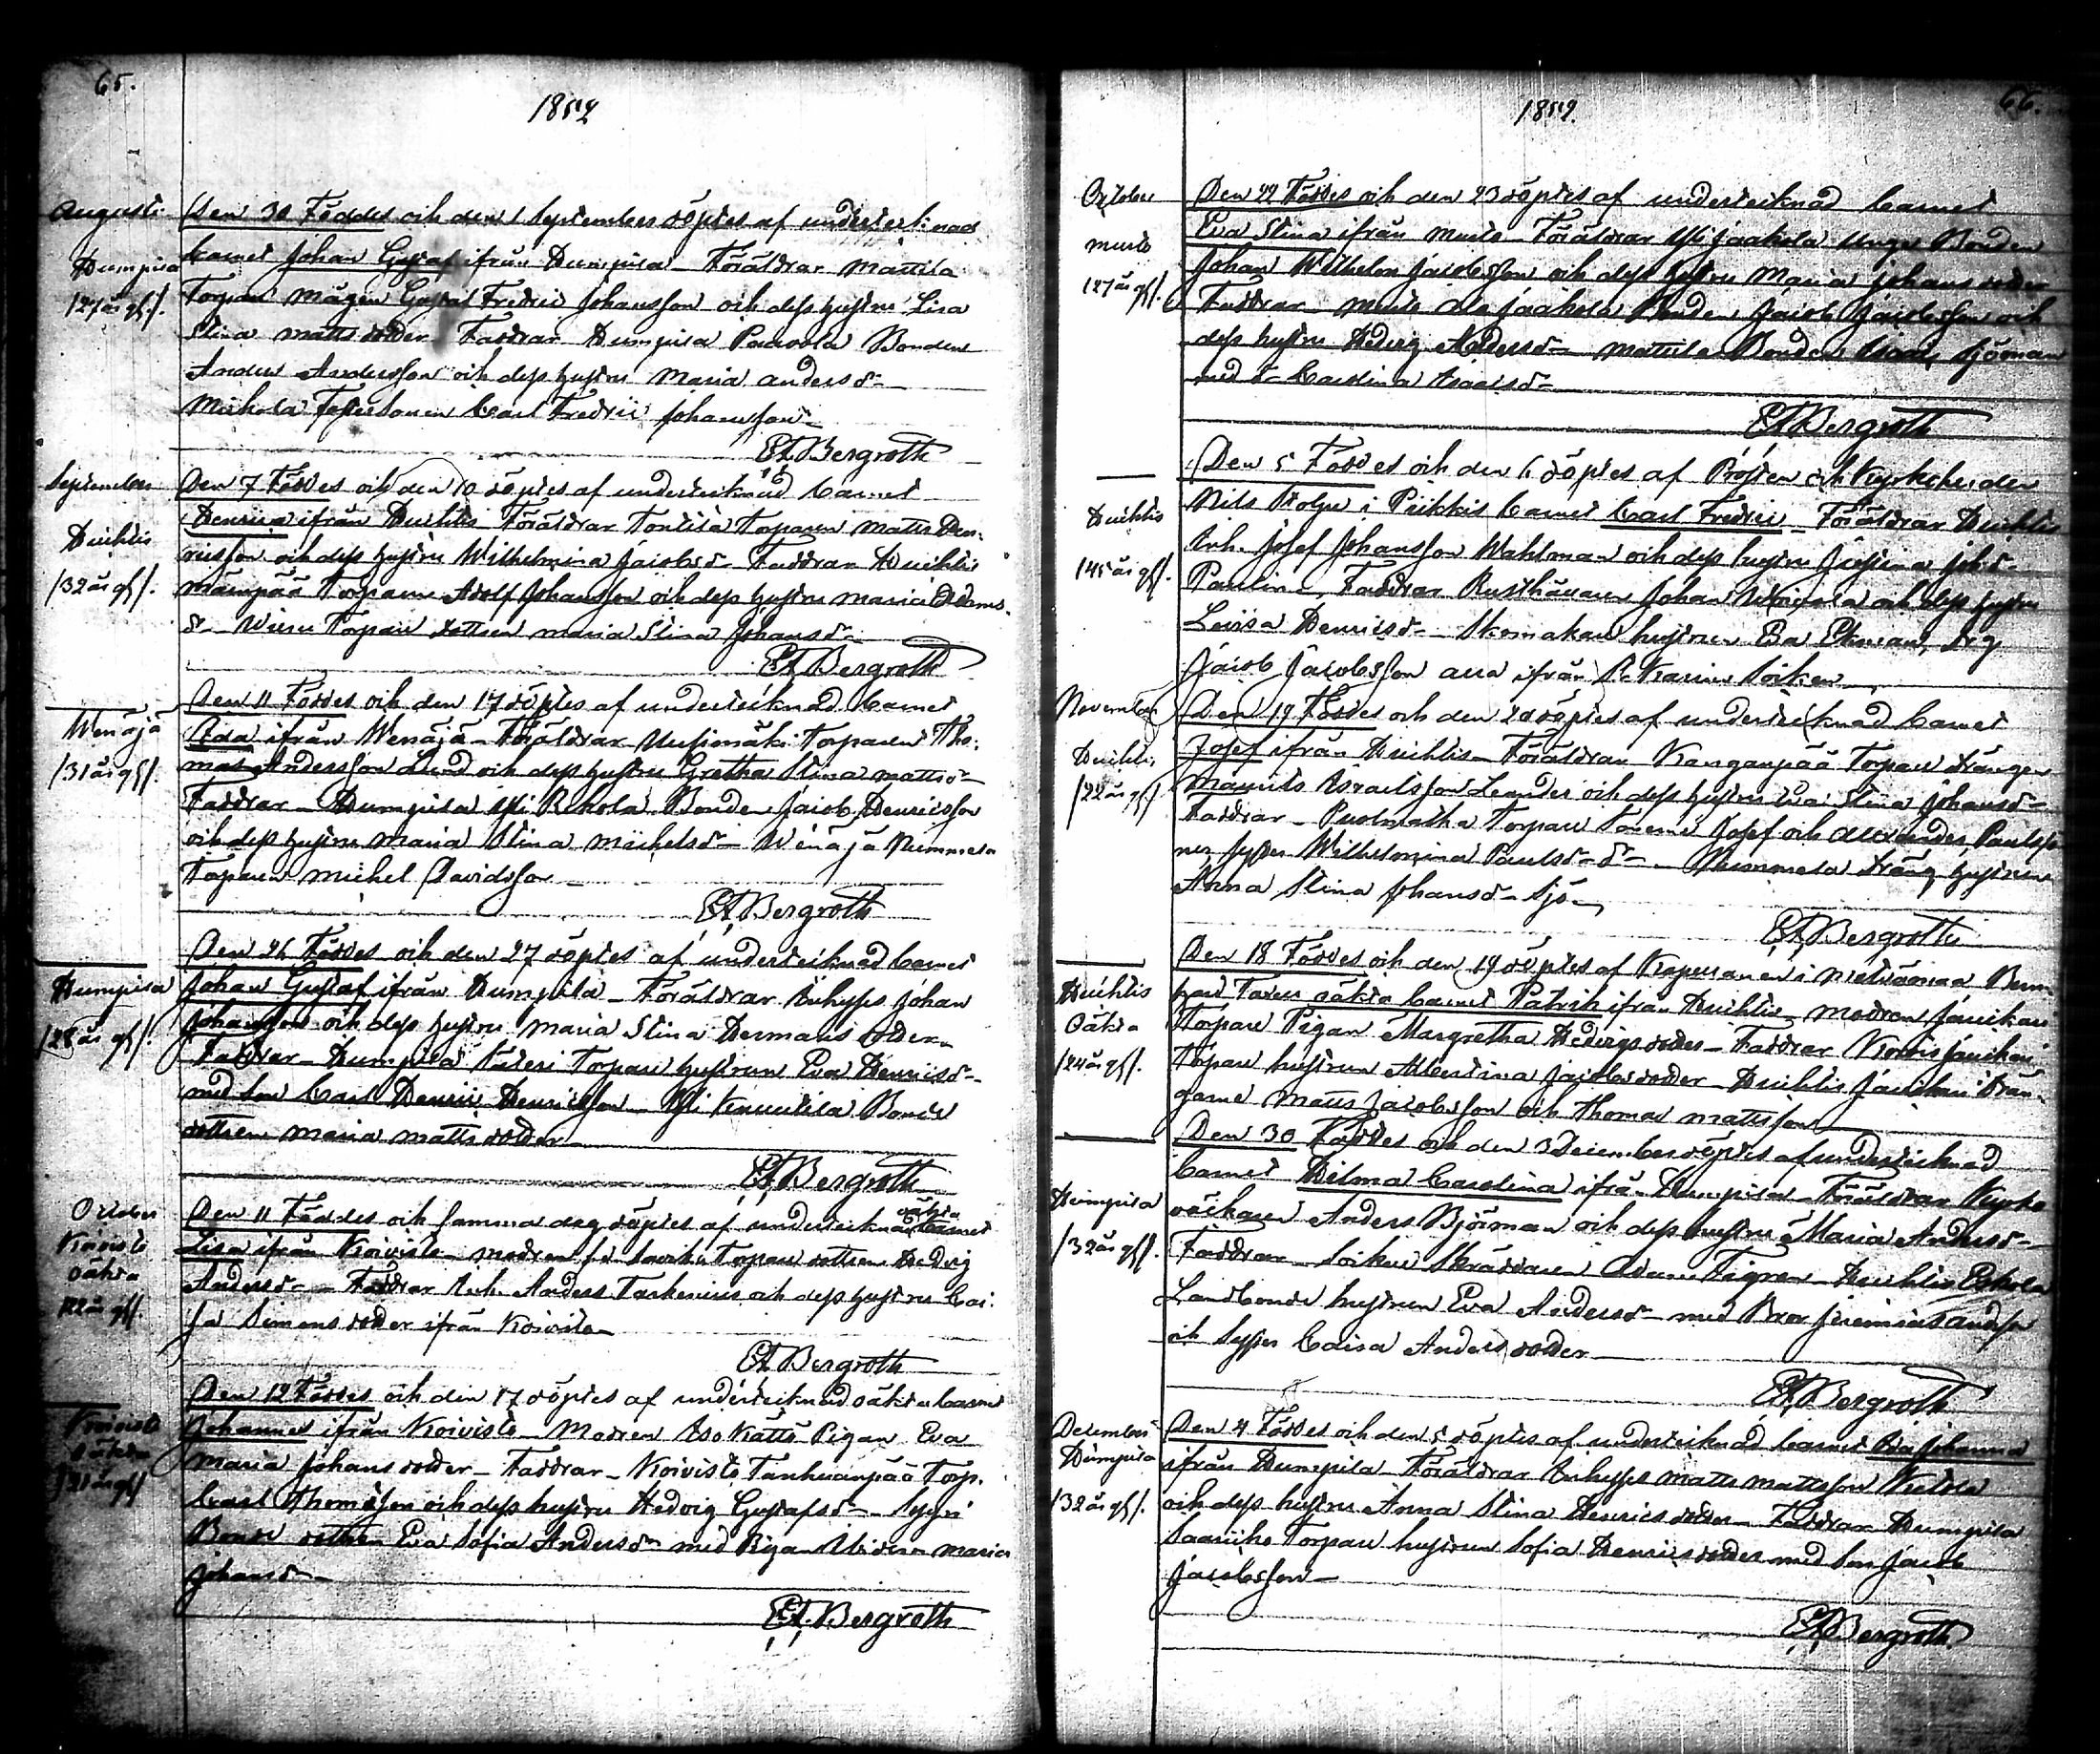 65.
1852
Augusti
Humpila
/27 år gl/.
Den 30 Föddes och den 1 September döptes af undertecknad
barnet Johan Gustaf ifrån Humpila – Föräldrar Mattila
Torpare mågen Gustaf Fredric Johansson och dess hustru Lisa
Stina Matts doder. Faddrar Humpila Paavola Bonden
Anders Andersson och dess hustru Maria Anders d–
Mikola Carl Fredric Johansson –
EABergroth
September
Huihtis
/32 år gl/.
Den 7 Föddes och den 10 döptes af undertecknad barnet
Henrica ifrån Huihtis Föräldrar Tontila Torparen Matts Hen-
ricsson och dess hustru Wilhelmina Jacobs d– Faddrar Huihtis
Mämpää Torparen Adolf Johansson och dess hustru Maria Adams-
d– Torpare dottren Maria Stina Johans d–
EABergroth
Wenäjä
/31 år gl/.
Den 11 Föddes och den 17 döptes af undertecknad barnet
Ada ifrån Wenäjä – Föräldrar Uusimäki Torparen Tho-
mas Andersson Lind och dess hustru Gretha Stina Matts d–
Faddrar – Humpila Yli Rekola Bonden Jacob Henricsson
och dess hustru Maria Stina Michels d– Wenäjä Nummela
Torparen Michel Davidsson –
EABergroth
Humpila
/28 år gl/.
Den 26 Föddes och den 27 döptes af undertecknad barnet
Johan Gustaf ifrån Humpila – Föräldrar Inhyses Johan
Johansson och dess hustru Maria Stina Hermans doder –
Faddrar – Humpila Säteri Torpare hustrun Eva Henrics d–
med son Carl Henric Henricsson – Yli Kenttilä Bonde
dottren Maria Matts doder –
EABergroth
October
Koivisto
oäkta
/22 år gl/.
Den 11 Föddes och samma dag döptes af undertecknad oäkta barnet
Lisa ifrån Koivisto – modren Torpare dottren Hedvig
Anders d– – Faddrar Inh. Anders Taskinen och dess hustru Cai-
sa Simons doder ifrån Koivisto –
EABergroth
Koivisto
oäkta
/21 år gl/
Den 12 Föddes och den 17 döptes af undertecknad oäkta barnet
Johannes ifrån Koivisto – Modren Iso Kättö Pigan Eva
Maria Johans doder – Faddrar – Koivisto Tanhuanpää Torp.
Carl Thomasson och dess hustru Hedvig Gustafs d– –
Bonde dottren Eva Sofia Anders d– med Pigan Maria
Johans d–
EABergroth
66.
1852.
October
Murto
/27 år gl/.
Den 22 Föddes och den 23 döptes af undertecknad barnet
Eva Stina ifrån Murto – Föräldrar Yli Jaakola Unge Bonden
Johan Wilhelm Jacobsson och dess hustru Maria Johans doder
Faddrar – Murto Ala Jaakola Bonden Jacob Jacobsson och
dess hustru Hedvig Anders d– Mattila Bonden Isaac Sjöman
med d– Carolina Isaacs d–
EABergroth
Huihtis
/45 år gl/.
Den 5 Föddes och den 6 döptes af Prosten och Kyrkoherden
Nils Stolpe i Piikkis barnet Carl Fredric – Föräldrar Huihtis
Inh. Josef Johansson Wahlman och dess hustru Justina Joh. d–
Paulin. Faddrar Rusthållaren Johan och dess hustru
Lovisa Henrics d– Skomakare hustrun Eva Ekman, Drg
Jacob Jacobsson alla ifrån Socken
November
Huihtis
/22 år gl/
Den 19 Föddes och den 20 döptes af undertecknad barnet
Josef ifrån Huihtis – Föräldrar Kanganpää Torpare drängen
Maurits Israelsson Leander och dess hustru Eva Stina Johans d–
Faddrar – Puolmatka Torpare sönerne Josef och Alexander Paulsso-
ner syster Wilhelmina Pauls d– d– . Nummela Dräng hustrun
Anna Stina Johans d– Sjö –
EABergroth
Huihtis
Oäkta
/24 år gl/.
Den 18 Föddes och den 19 döptes af Kapellanen i
oäkta barnet Patrik ifrån Huihtis – modren
Torpare Pigan Margretha Hedvigs doder – Faddrar
Torpare hustrun Albertina Jacobs doder – Huihtis Drän-
garne Matts Jacobsson och Thomas Mattsson
Humpila
/32 år gl/.
Den 30 Föddes och den 3 December döptes af undertecknad
barnet Hilma Carolina ifrån Humpila – Föräldrar Kyrko
väktaren Anders Björman och dess hustru Maria Anders d–
Faddrar – Socken Skräddaren Adam Tigren – Huihtis Eskola
Landbonde hustrun Eva Anders d– med Bror Jeremias Andsson
och Syster Caisa Anders doder –
EABergroth
December
Humpila
/32 år gl/.
Den 4 Föddes och den 5 döptes af undertecknad barnet Ida Johanna
ifrån Humpila – Föräldrar Inhyses Matts Mattsson
och dess hustru Anna Stina Henrics doder – Faddrar Humpila
Torpare hustrun Sofia Henrics doder med son Jacob
Jacobsson –
EABergroth